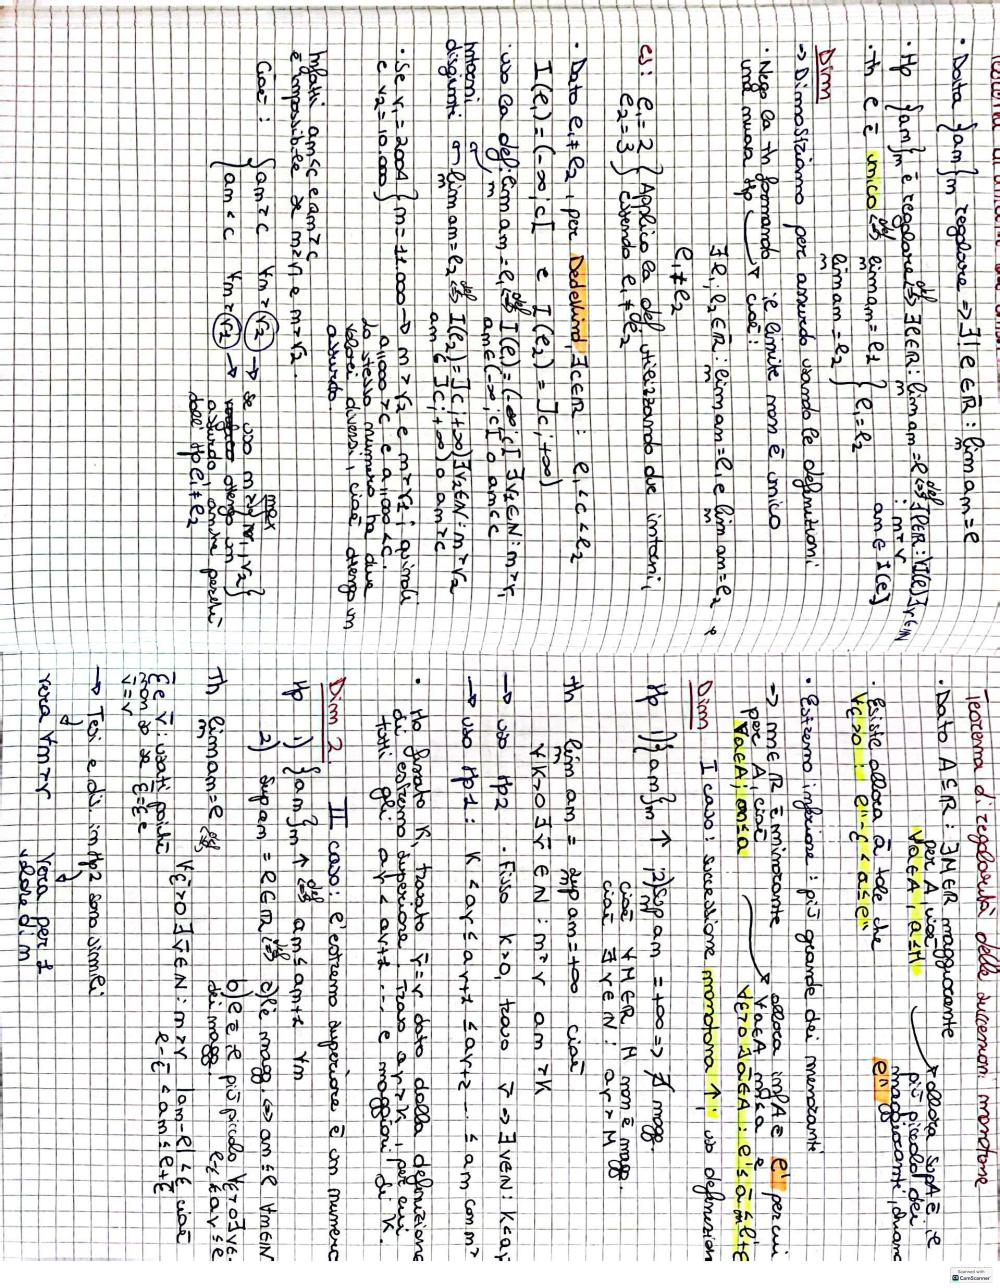 • Data {am}m regolare => ∃! e ∈ R̄ : lim am = e
• Hp {am}m è regolare <=>def ∃ e ∈ R̄ : lim am = e <=>def ∃ e ∈ R̄ : ∀ I(e) ∃ γ ∈ N
: m > γ am ∈ I(e)
• Th e è unico <=>def lim am = e1
lim am = e2 } e1 = e2
Dim
-> Dimostriamo per assurdo usando le definizioni
• Nego la th formando
una nuova Hp -> cioè: il limite non è unico
∃ e1, e2 ∈ R̄ : lim am = e1 e lim am = e2
e1 ≠ e2
es: e1 = 2
e2 = 3 } Applico la def utilizzando due intorni,
essendo e1 ≠ e2
• Dato e1 ≠ e2, per Dedekind, ∃ c ∈ R : e1 < c < e2
I(e1) = (-∞; c[ e I(e2) = ]c; +∞)
• uso la def: lim am = e1 <=>def I(e1) = (-∞; c[ ∃ γ1 ∈ N : m > γ1
am ∈ (-∞; c[ o am < c
intorni
disgiunti lim am = e2 <=>def I(e2) = ]c; +∞) ∃ γ2 ∈ N : m > γ2
am ∈ ]c; +∞) o am > c
• Se γ1 = 2001
e γ2 = 10.000 } m = 11.000 -> m > γ2 e m > γ1; quindi
a11000 > c e a11000 < c.
Lo stesso numero ha due
valori diversi, cioè ottengo un
assurdo.
Infatti am < c e am > c
è impossibile se m > γ1 e m > γ2.
Cioè: { am > c ∀ m > γ2 -> se uso m > max {γ1, γ2}
am < c ∀ m > γ2 -> ottengo un
assurdo, anche perché
dall'Hp e1 ≠ e2
Teorema di regolarità delle successioni monotone
• Dato A ⊆ R : ∃ M ∈ R maggiorante
per A, cioè
∀ a ∈ A, a ≤ M
-> allora Sup A è il
più piccolo dei
maggioranti, chiamo
e''
• Esiste allora ā tale che
∀ ε > 0 : e'' - ε < ā ≤ e''
• Estremo inferiore: più grande dei minoranti
-> m ∈ R è minorante
per A, cioè
∀ a ∈ A, m ≤ a
-> allora inf A è e' per cui
∀ a ∈ A m ≤ a e
∀ ε > 0 ∃ ā ∈ A : e' ≤ ā ≤ e' + ε
Dim I caso: successione monotona ↑; uso definizion
Hp 1) {am}m ↑ 2) Sup am = +∞ => ∄ magg.
cioè ∀ M ∈ R M non è magg.
cioè ∃ γ ∈ N : aγ > M
th lim am = sup am = +∞ cioè
∀ K > 0 ∃ γ̄ ∈ N : m > γ am > K
-> uso Hp2 • Fisso K > 0, trovo γ => ∃ γ ∈ N : K < aγ
-> uso Hp1: K < aγ ≤ aγ+1 ≤ aγ+2 ... ≤ am con m >
• Ho fissato K, trovato γ̄ = γ dato dalla definizione
di estremo superiore. Trovo aγ > K, per cui
tutti gli aγ < aγ+1 ... e maggiori di K.
Dim 2 II caso: l'estremo superiore è un numero
Hp 1) {am}m ↑ <=>def am ≤ am+1 ∀m
2) Sup am = e ∈ R <=>def a) e è magg. <=> am ≤ e ∀m ∈ N
b) e è il più piccolo ∀ ε > 0 ∃ γ ∈
dei magg e - ε < aγ ≤ e
Th lim am = e <=>def ∀ ε̄ > 0 ∃ γ̄ ∈ N : m > γ |am - e| < ε cioè
e - ε̄ < am ≤ e + ε̄
ε̄ e γ̄: usati poiché
non so se ε̄ = ε e
γ̄ = γ
-> Tesi e def. in Hp2 sono simili
vera ∀ m > γ vera per 1
valore di m
Scanned with
CamScanner